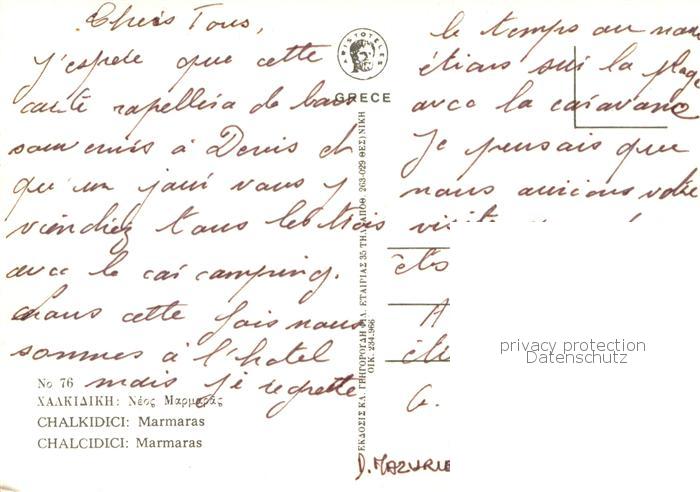 Chers Tous,
j'espère que cette
carte rapellera de bons
souvenirs à Denis et
qu'un jour vous y
viendrez tous les trois
avec le car camping.
nous cette fois nous
sommes à l'hotel
mais je regrette
le temps ou nous
étions sur la plage
avec la caravane
Je pensais que
nous aurions votre
visite
ARISTOTELES
GRECE
No 76
ΧΑΛΚΙΔΙΚΗ: Νέος Μαρμαρᾶς
CHALKIDICI: Marmaras
CHALCIDICI: Marmaras
ΕΚΔΟΣΙΣ ΚΛ. ΓΡΗΓΟΡΟΓΔΗ ΦΙΛ. ΕΤΑΙΡΙΑΣ 35 ΤΗΛ. ΑΠΟΘ. 263-029 ΘΕΣ)ΝΙΚΗ
ΟΙΚ. 234.966
D. MAZURIE
privacy protection
Datenschutz